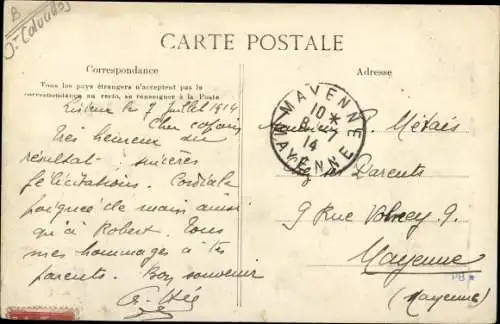 B
Dt Calvados
CARTE POSTALE
Correspondance
Tous les pays étrangers n'acceptent pas la
correspondance au recto, se renseigner à la Poste
Lisieux le 7 Juillet 1914
Cher copain
Très heureux du
résultat, sincères
félicitations. Cordiale
poignée de main ainsi
qu'à Robert. Tous
mes hommages à tes
parents. Bon souvenir
Adresse
MAYENNE
10 *
8 - 7
14
MAYENNE
Monsieur P. Métais
chez ses Parents
9 Rue Volney 9.
Mayenne
(Mayenne)
PB *